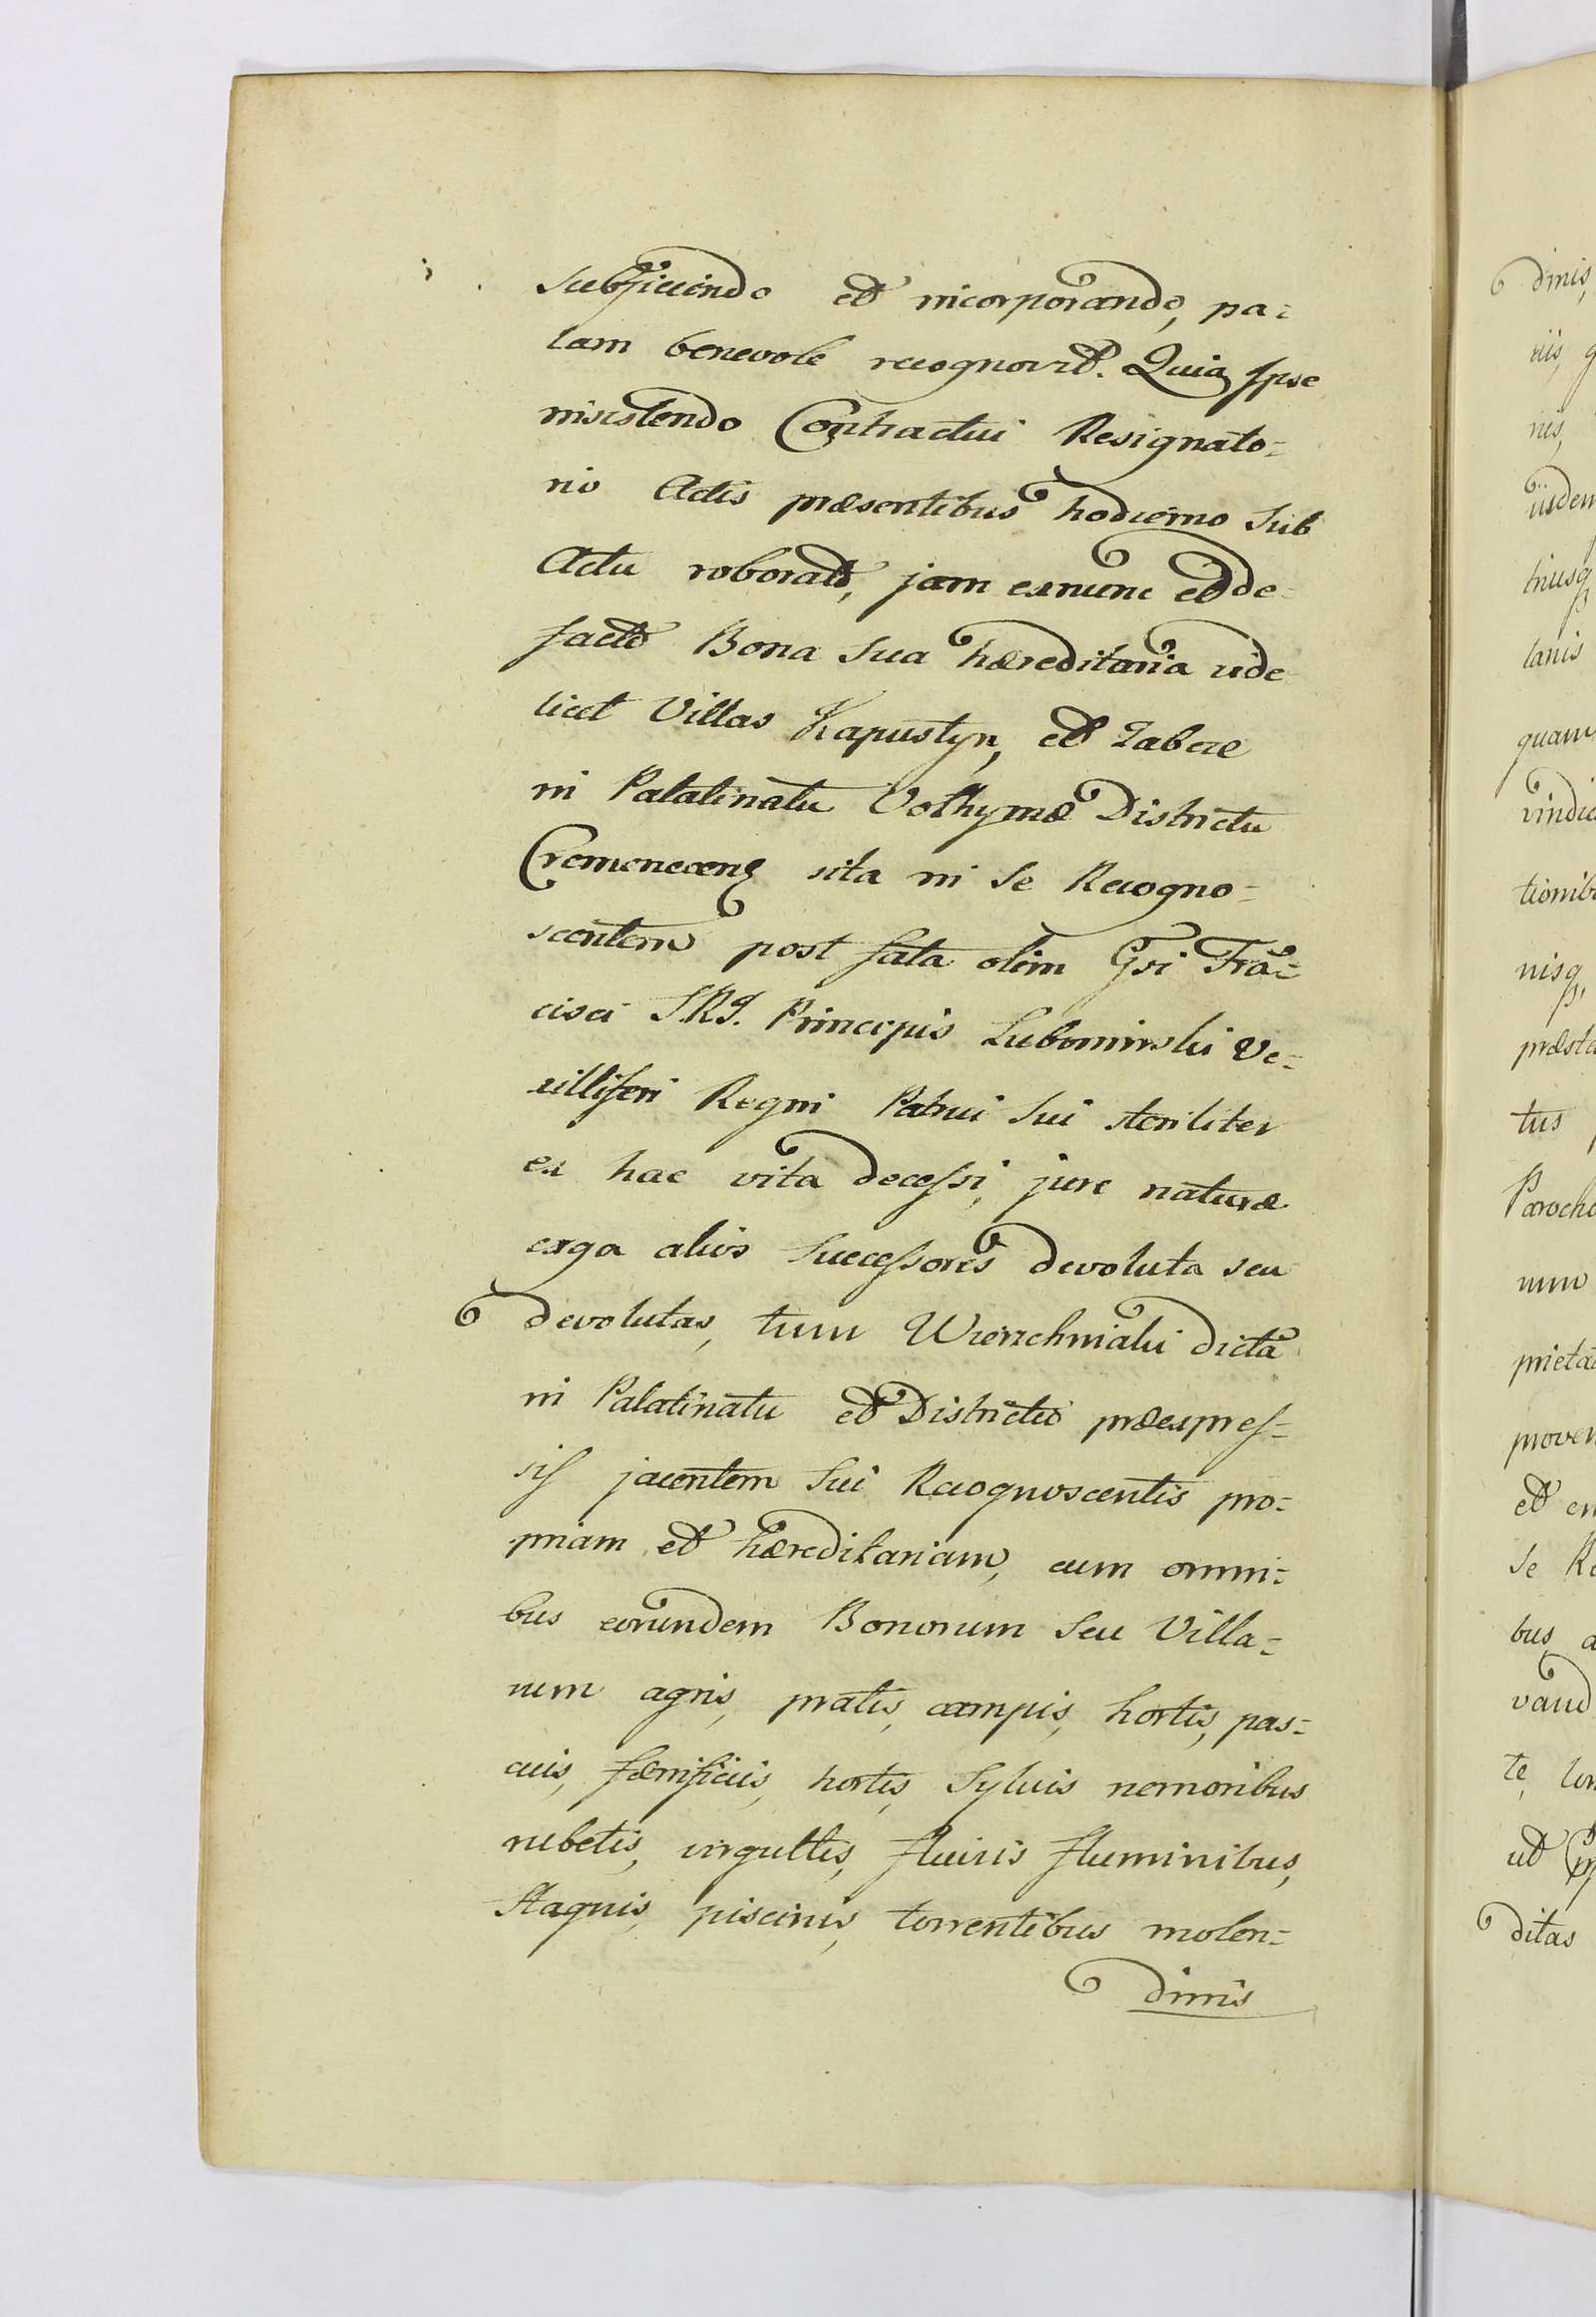 subjiciendo et incorporando, pa=
lam benevole recognovit. Quia Ipse
insistendo Contractui Resignato=
rio Actis præsentibus hodierno sub
Actu roborato, jam exnunc et de
facto Bona sua hæreditaria vide
licet Villas Kapustyn, et Zabcze
in Palatinatu Volhyniæ Districtu
Cremeneceng sita in se Recogno=
scentem post fata olim Gsi Frã=
cisci S.R.I. Principis Lubomirski Ve=
xilliferi Regni Patrui sui steriliter
ex hac vita decessi, jure naturæ
erga alios Successores devoluta seu
devolutas, tum Wierzchniaki dictã
in Palatinatu et Districtu præexpres=
sis jacentem sui Recognoscentis pro=
priam et hæreditariam, cum omni=
bus eorundem Bonorum seu Villa=
rum agris, pratis, campis, hortis, pas=
cuis, fænificiis, hortis, Sylvis nemoribus
rubetis, virgultis, fluviis fluminibus,
stagnis, piscinis, torrentibus molen=
dinis
dinis,
riis,
nis,
iisdem
triusq
tanis
quam
vindic
tionib
nisq,
præsta
tus
Paroch
num
prieta
proven
et em
se Re
bus a
vand
te,
ut
ditas